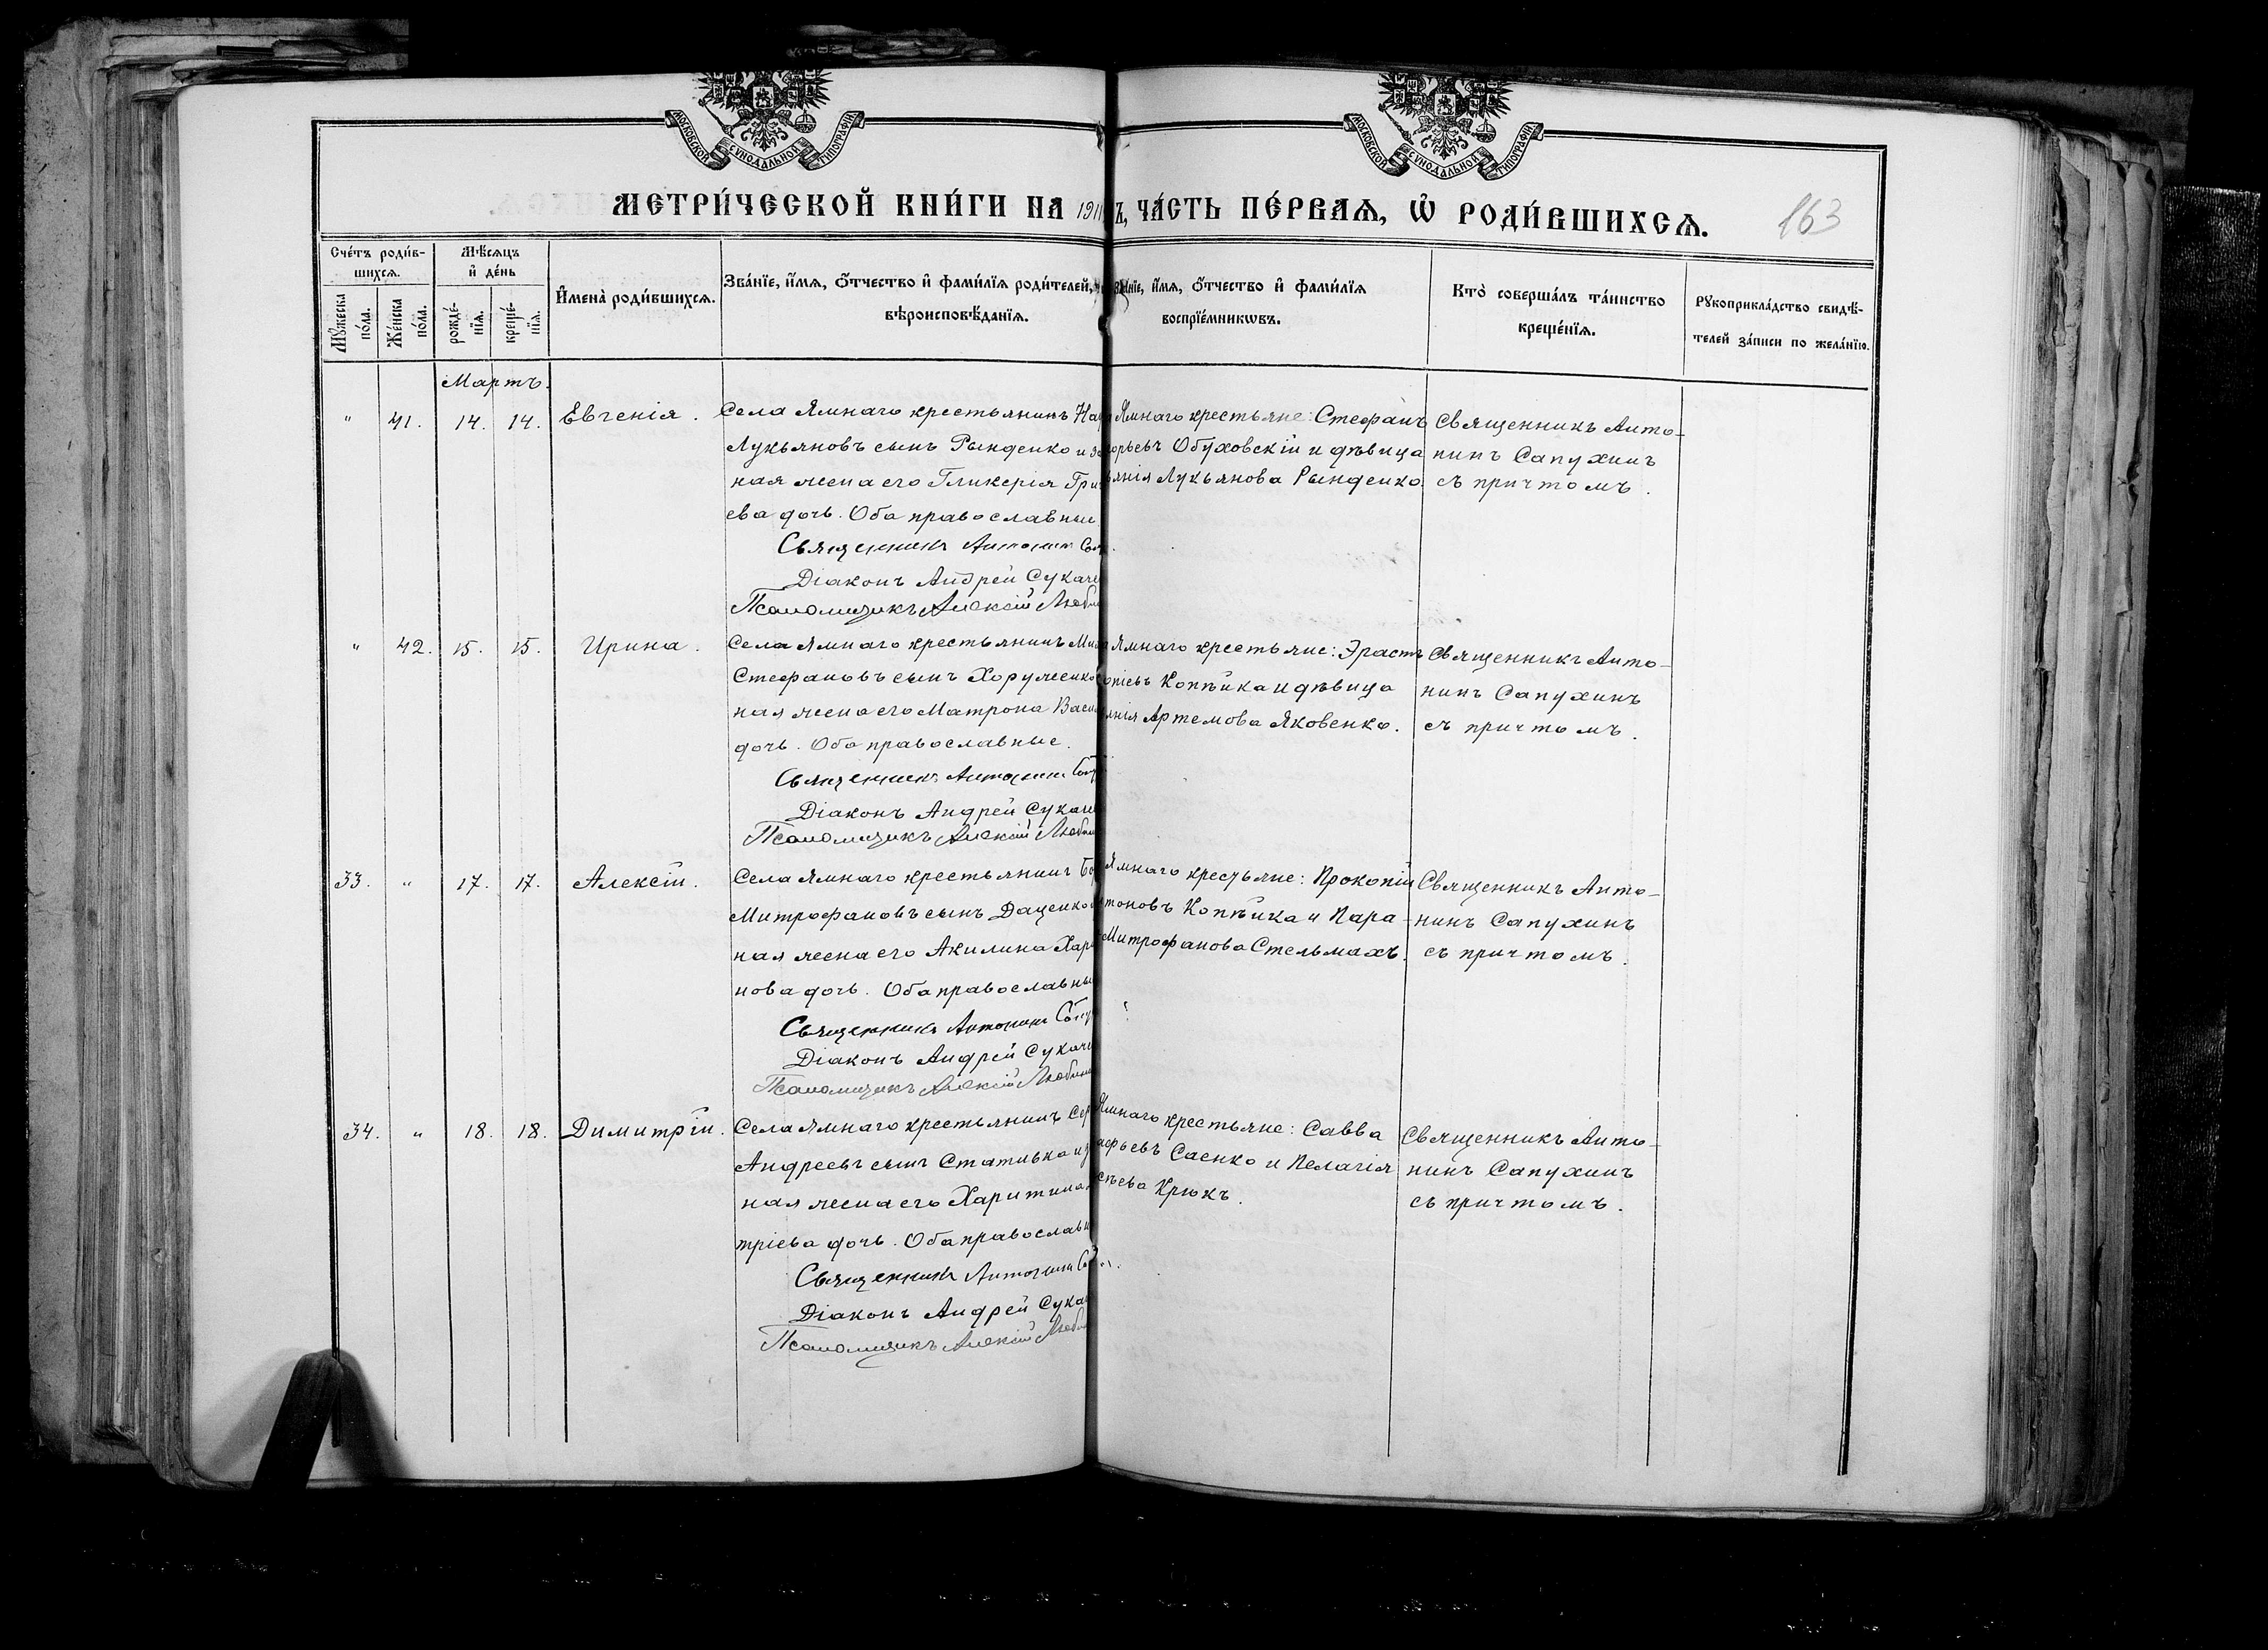 МОСКОВСКОЙ СУНОДАЛЬНОЙ ТИПОГРАФІИ
МОСКОВСКОЙ СУНОДАЛЬНОЙ ТИПОГРАФІИ
МЕТРИ́ЧЕСКОЙ КНИ́ГИ НА 1911 ЧА́СТЬ ПЕ́РВАѦ, Ѽ РОДИ́ВШИХСѦ.
163
Сче́тъ роди́в-
шихсѧ.
Мꙋ́жеска по́ла.
Же́нска по́ла.
Мѣ́сѧцъ
и҆ де́нь
рожде́-
нїѧ.
креще́-
нїѧ.
И҆мена̀ роди́вшихсѧ.
Зва́нїе, и҆́мѧ, ѻ҆́тчество и҆ фами́лїѧ роди́телей,
вѣроисповѣ́данїѧ.
и҆́мѧ, ѻ҆́тчество и҆ фами́лїѧ
воспрїе́мникѡвъ.
Кто̀ соверша́лъ та́инство
креще́нїѧ.
Рꙋкоприкла́дство свидѣ́-
телей за́писи по жела́нїю.
Мартъ.
" 41. 14. 14. Евгенія.
Села Ямнаго крестьянинъ
Лукьяновъ сынъ Рынденко и
ная жена его Гликерія Гри
ева дочь. Оба православные.
Священникъ Антонинъ
Діаконъ Андрей Сукаче
Псаломщикъ Алексій Люби
Ямнаго крестьяне: Стефанъ
орьевъ Обуховскій и дѣвица
анія Лукьянова Рынденко.
Священникъ Анто-
нинъ Сапухинъ
съ причтомъ.
" 42. 15. 15. Ирина.
Села Ямнаго крестьянинъ
Стефановъ сынъ Хоруженко
ная жена его Матрона Васи
дочь. Оба православные.
Священникъ Антонинъ
Діаконъ Андрей Сукаче
Псаломщикъ Алексій Люби
Ямнаго крестьяне: Эрастъ
опіевъ Копѣйка и дѣвица
анія Артемова Яковенко.
Священникъ Анто-
нинъ Сапухинъ
съ причтомъ.
33. " 17. 17. Алексій.
Села Ямнаго крестьянинъ
Митрофановъ сынъ Даценко
ная жена его Акилина Хари
нова дочь. Оба православны
Священникъ Антонинъ
Діаконъ Андрей Сукаче
Псаломщикъ Алексій Любим
Ямнаго крестьяне: Прокопій
тоновъ Копѣйка и Пара-
Митрофанова Стельмахъ.
Священникъ Анто-
нинъ Сапухинъ
съ причтомъ.
34. " 18. 18. Димитрій.
Села Ямнаго крестьянинъ Сер
Андреевъ сынъ Стативка и
ная жена его Харитина
тріева дочь. Оба православн
Священникъ Антонинъ
Діаконъ Андрей Сука
Псаломщикъ Алексій Люби
Ямнаго крестьяне: Савва
афьевъ Саенко и Пелагія
сѣева Крюкъ.
Священникъ Анто-
нинъ Сапухинъ
съ причтомъ.